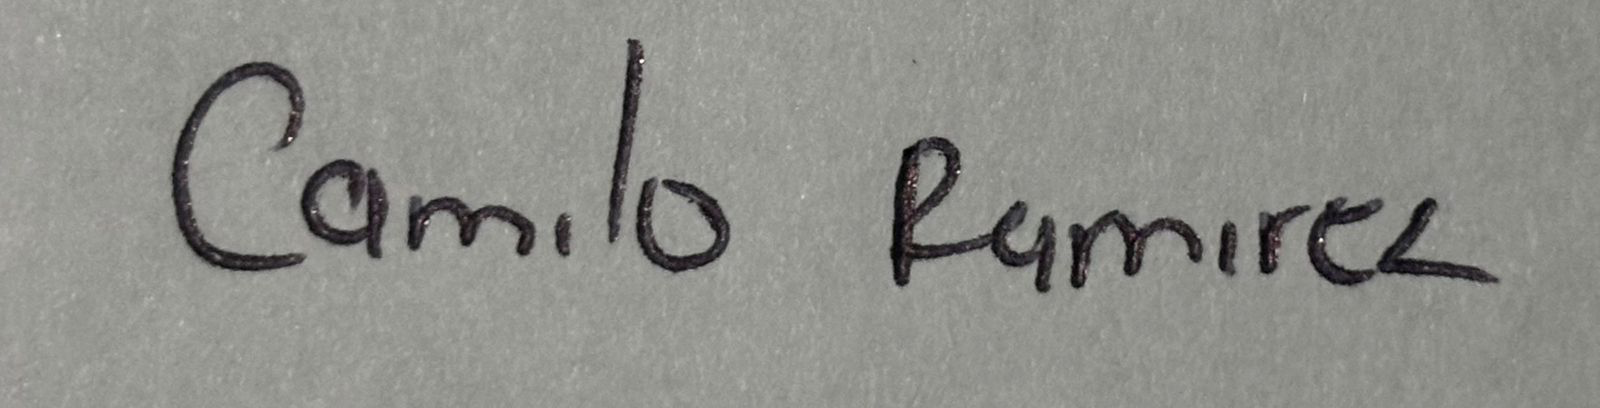 Camilo Ramirez